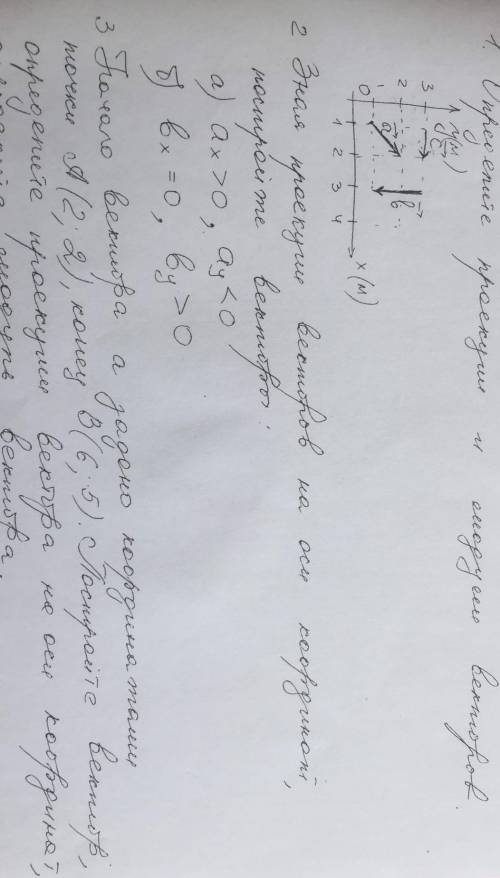 1. Определите проекции и модули векторов.
y(м)
3
2
1
0
1 2 3 4
x (м)
a
b
c
2 Зная проекции векторов на оси координат,
постройте векторы:
а) ax>0, ay<0
б) bx=0, by>0
3 Начало вектора a задано координатами
точки A(2; 2), конец B(6; 5). Постройте вектор,
определите проекции вектора на оси координат,
модуль вектора.